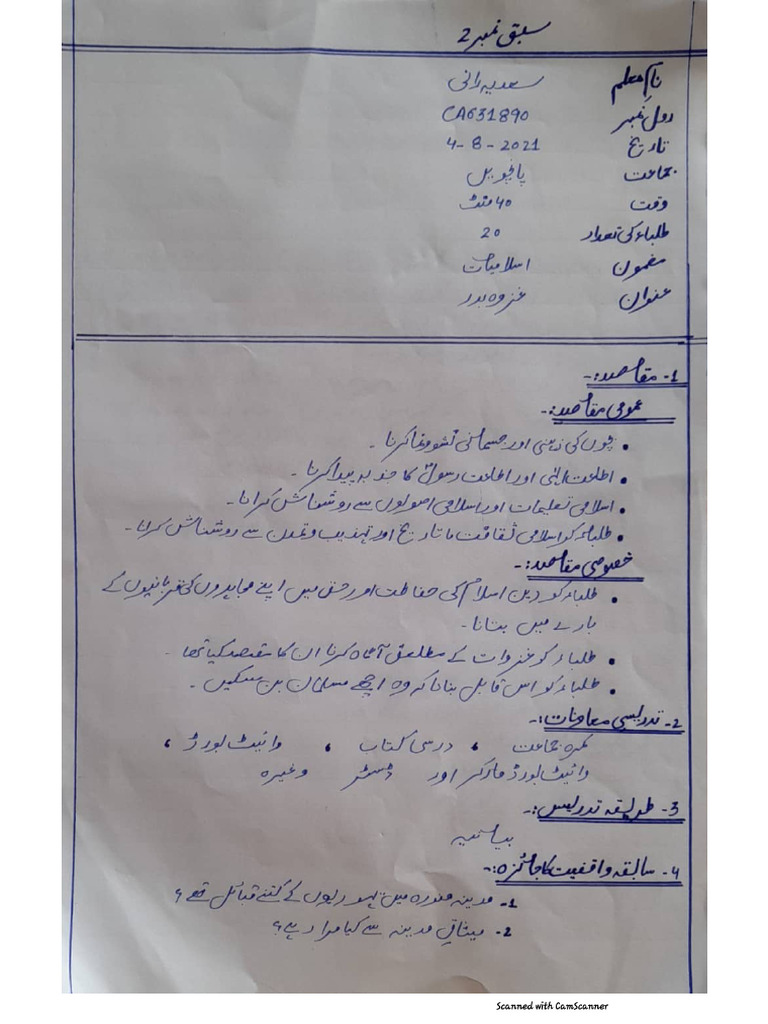 سبق نمبر 2
نام معلم سعدیہ رانی
رول نمبر CA631890
تاریخ 4-8-2021
جماعت پانچویں
وقت 40 منٹ
طلباء کی تعداد 20
مضمون اسلامیات
عنوان غزوہ بدر
1- مقاصد:-
عمومی مقاصد:-
• بچوں کی ذہنی اور جسمانی نشوونما کرنا۔
• اطاعت الٰہی اور اطاعت رسولؐ کا جذبہ پیدا کرنا۔
• اسلامی تعلیمات اور اسلامی اصولوں سے روشناش کرانا۔
• طلباء کو اسلامی ثقافت تاریخ اور تہذیب و تمدن سے روشناش کرانا۔
خصوصی مقاصد:-
• طلباء کو دین اسلام کی حفاظت اور میں اپنے مجاہدوں کی قربانیوں کے
بارے میں بتانا۔
• طلباء کو غزوات کے مطلعق آگاہ کرنا ان کا مقصد کیا تھا۔
• طلباء کو اس قابل بنانا کہ وہ اچھے مسلمان بن سکیں۔
2- تدریسی معاونات:-
کمرہ جماعت ، درسی کتاب ، وائیٹ بورڈ ،
وائیٹ بورڈ مارکر اور ڈسٹر وغیرہ
3- طریقہ تدریس:-
بیانیہ
4- سابقہ واقفیت کا جائزہ:-
1- مدینہ منورہ میں یہودیوں کے کتنے قبائل تھے؟
2- میثاق مدینہ سے کیا مراد ہے؟
Scanned with CamScanner